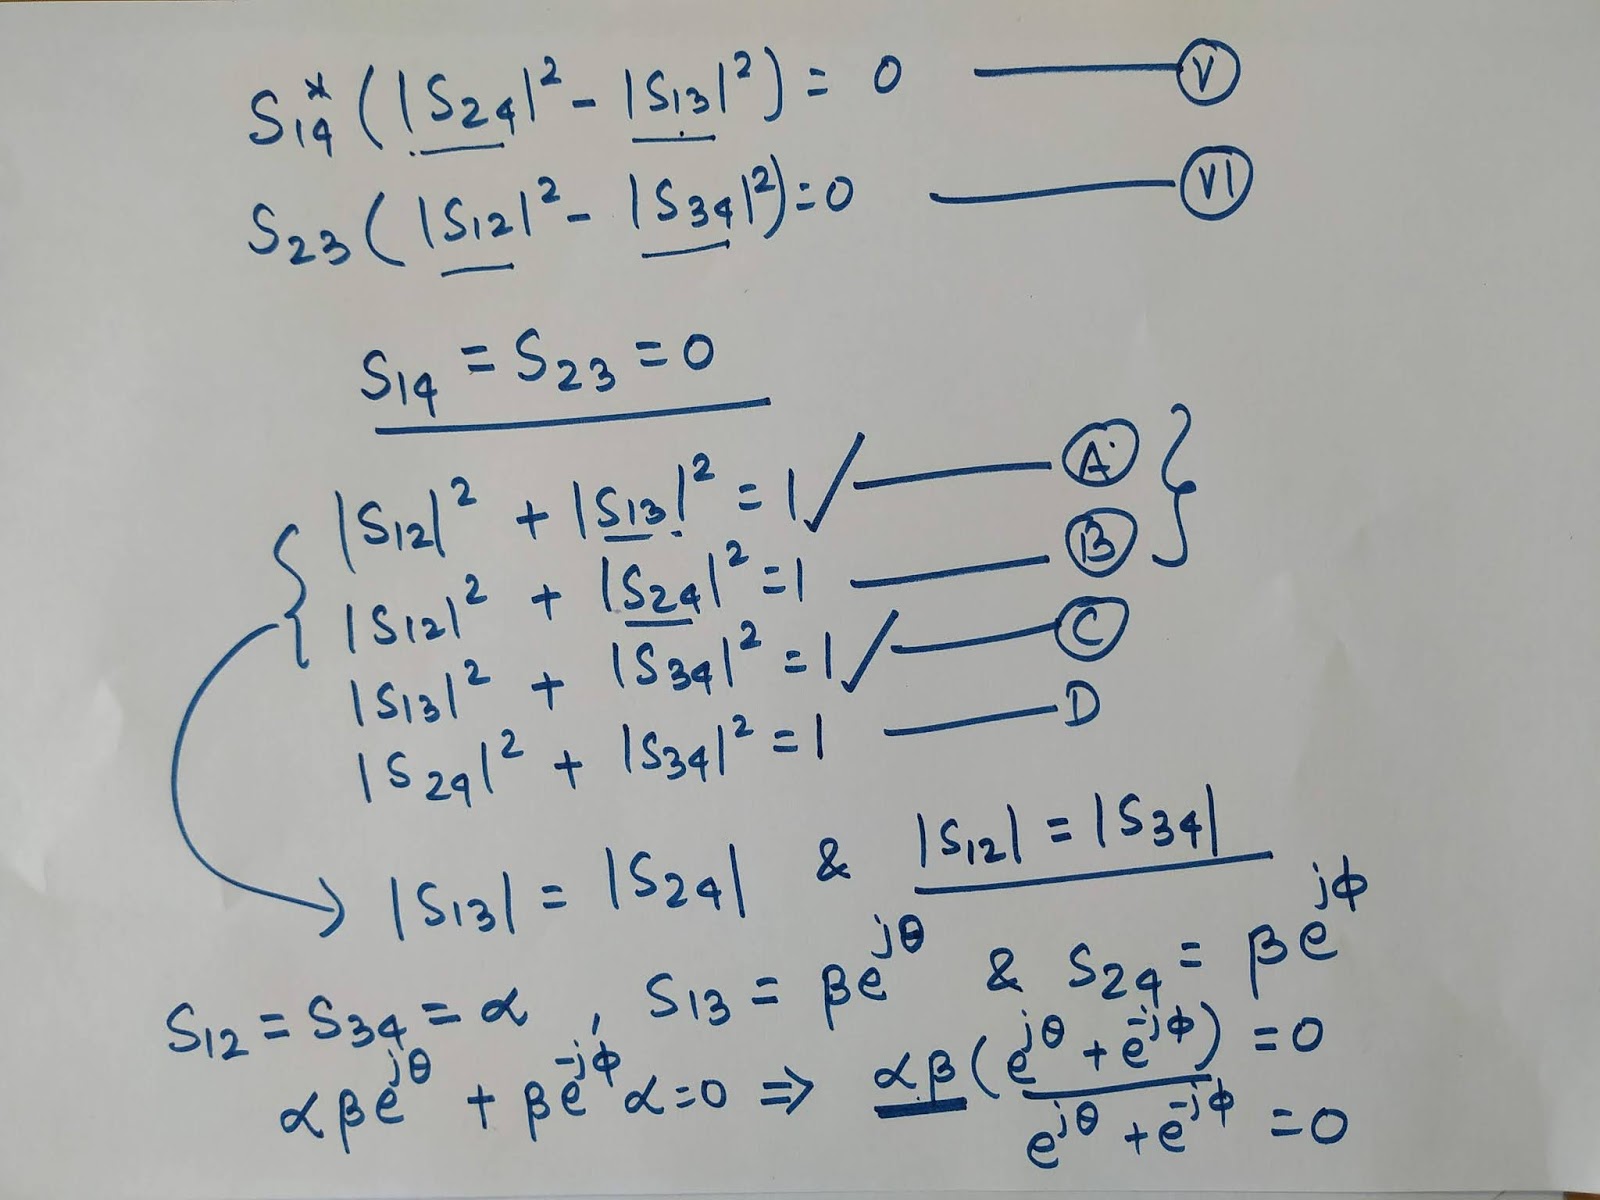 S₁₄* ( |S₂₄|² - |S₁₃|² ) = 0 —— Ⓥ
S₂₃ ( |S₁₂|² - |S₃₄|² ) = 0 —— (VI)
S₁₄ = S₂₃ = 0
|S₁₂|² + |S₁₃|² = 1 ✓ —— Ⓐ
|S₁₂|² + |S₂₄|² = 1 —— Ⓑ
|S₁₃|² + |S₃₄|² = 1 ✓ —— Ⓒ
|S₂₄|² + |S₃₄|² = 1 —— D
→ |S₁₃| = |S₂₄| & |S₁₂| = |S₃₄|
S₁₂ = S₃₄ = α , S₁₃ = βe^{jθ} & S₂₄ = βe^{jϕ}
αβe^{jθ} + βe^{-jϕ}α = 0 ⇒ αβ(e^{jθ} + e^{-jϕ}) = 0
e^{jθ} + e^{-jϕ} = 0